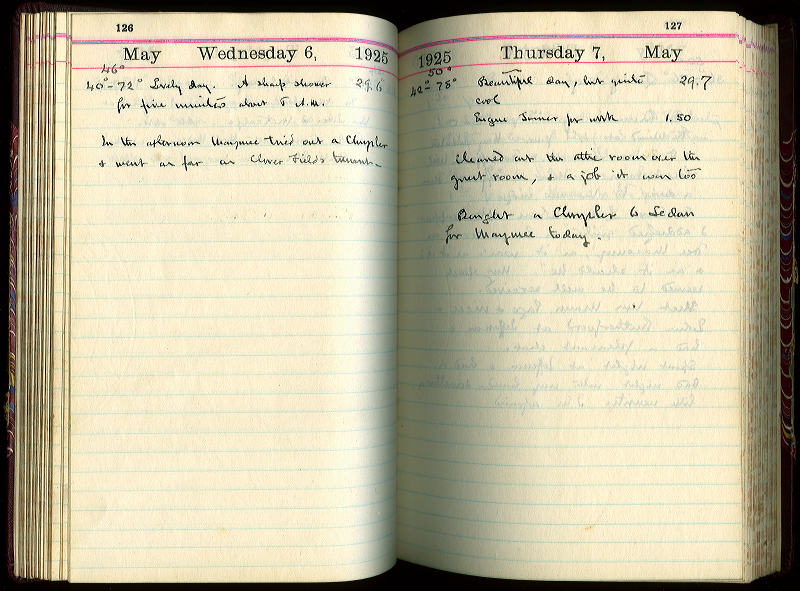 126
May Wednesday 6, 1925
46°
40°-72° Lovely day. A sharp shower 29.6
for five minutes about 5 A.M.
In the afternoon Maymee tried out a Chrysler
& went as far as Clover Fields
127
1925 Thursday 7, May
50°
42°-78° Beautiful day, but quite 29.7
cool
Eugene Joiner for work 1.50
Cleaned out the attic room over the
guest room, & a job it was too
Bought a Chrysler 6 Sedan
for Maymee today.